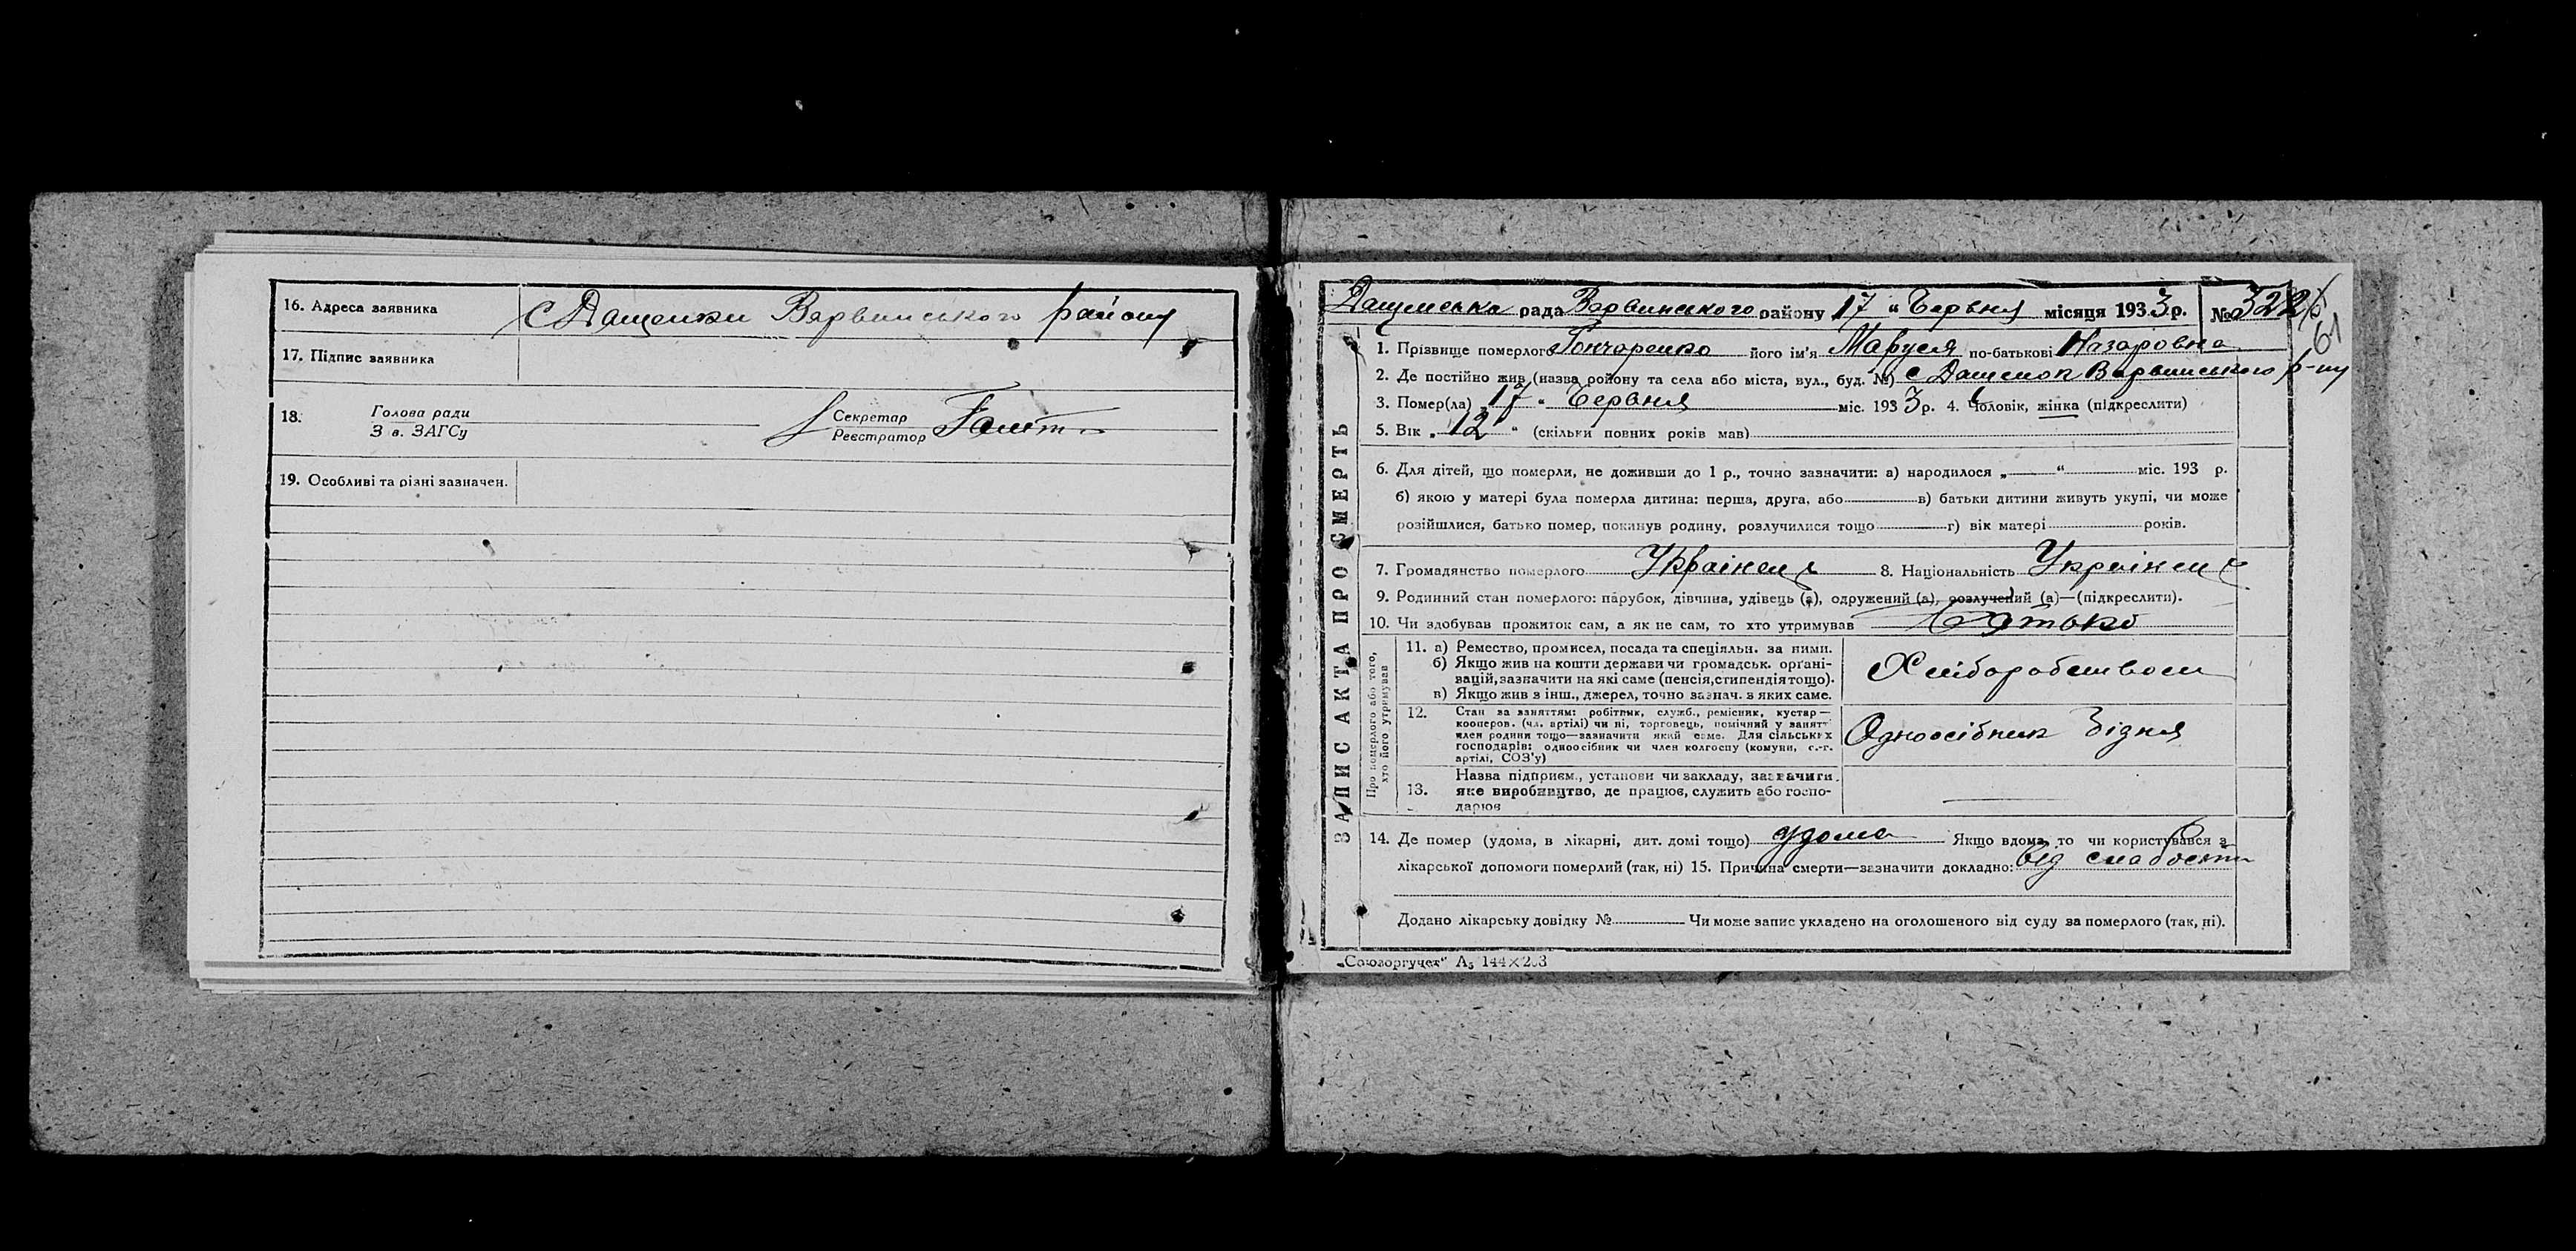 16. Адреса заявника с Дащенки Варвинського району
17. Підпис заявника
18. Голова ради
З в. ЗАГСу
Секретар
Реєстратор
19. Особливі та різні зазначен.
ЗАПИС АКТА ПРО СМЕРТЬ
Дащенська рада Варвинського району 17 " Червня місяця 1933 р. № 322
61
1. Прізвище померлого Гончаренко його ім'я Маруся по-батькові Назаровна
2. Де постійно жив (назва району та села або міста, вул., буд. №) с Дащенок Варвинського р-ну
3. Помер(ла) „ 17 " Червня міс. 1933 р. 4. Чоловік, жінка (підкреслити)
5. Вік „ 12 " (скільки повних років мав)
6. Для дітей, що померли, не доживши до 1 р., точно зазначити: а) народилося „ " міс. 193 р.
б) якою у матері була померла дитина: перша, друга, або в) батьки дитини живуть укупі, чи може
розійшлися, батько помер, покинув родину, розлучилися тощо г) вік матері років.
7. Громадянство померлого Українец 8. Національність Українец
9. Родинний стан померлого: парубок, дівчина, удівець (а), одружений (а), розлучений (а)—(підкреслити).
10. Чи здобував прожиток сам, а як не сам, то хто утримував Батько
Про померлого або того,
хто його утримував
11. а) Ремество, промисел, посада та спеціяльн. за ними.
б) Якщо жив на кошти держави чи громадськ. органі-
зацій, зазначити на які саме (пенсія, стипендія тощо).
в) Якщо жив з інш., джерел, точно зазнач. з яких саме.
Хліборобством
12. Стан за заняттям: робітник, служб., ремісник, кустар—
кооперов. (чл. артілі) чи ні, торговець, помічний у занятт
член родини тощо—зазначити який саме. Для сільських
господарів: одноосібник чи член колгоспу (комуни, с.-г.
артілі, СОЗ'у)
Одноосібник Бідня
13. Назва підприєм., установи чи закладу, зазначити
яке виробництво, де працює, служить або госпо-
дарює
14. Де помер (удома, в лікарні, дит. домі тощо) удома Якщо вдома, то чи користувався з
лікарської допомоги померлий (так, ні) 15. Причина смерти—зазначити докладно: від слабости
Додано лікарську довідку № Чи може запис укладено на оголошеного від суду за померлого (так, ні).
„Союзоргучет" А₅ 144×203